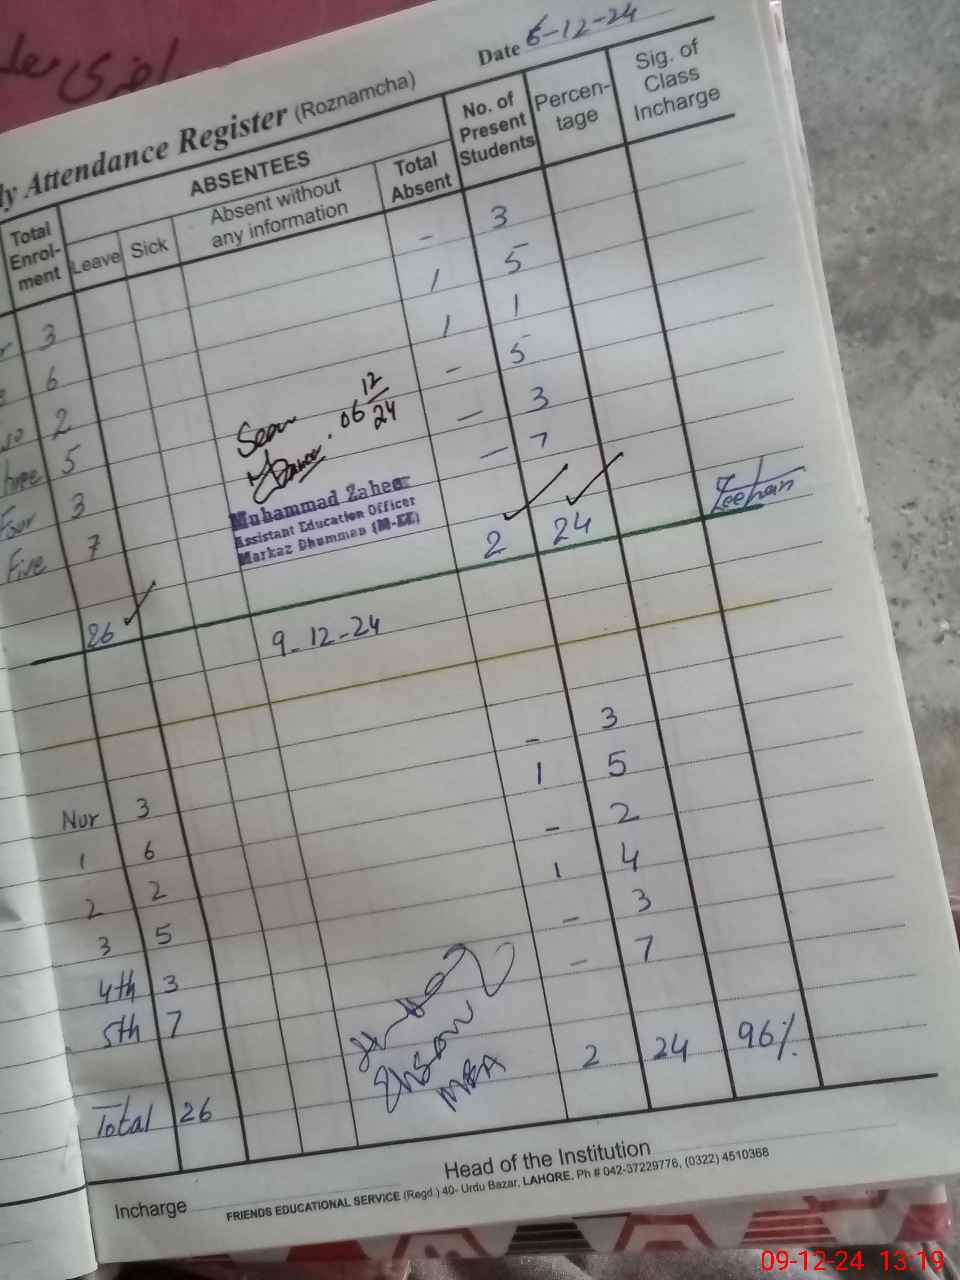 Date 6-12-24
Attendance Register (Roznamcha)
Total Enrol- ment
ABSENTEES
Leave
Sick
Absent without any information
Total Absent
No. of Present Students
Percen- tage
Sig. of Class Incharge
3 - 3
6 1 5
2 1 1
5 - 5
Four 3 - 3
Five 7 - 7
26 2 24
Seen
06 12/24
Muhammad Zaheer
Assistant Education Officer
Markaz Dhumman (M-EE)
Zeeshan
9-12-24
Nur 3 - 3
1 6 1 5
2 2 - 2
3 5 1 4
4th 3 - 3
5th 7 - 7
Total 26 2 24 96%
MEA
Incharge
Head of the Institution
FRIENDS EDUCATIONAL SERVICE (Regd.) 40- Urdu Bazar, LAHORE. Ph # 042-37229776, (0322) 4510368
09-12-24 13:19